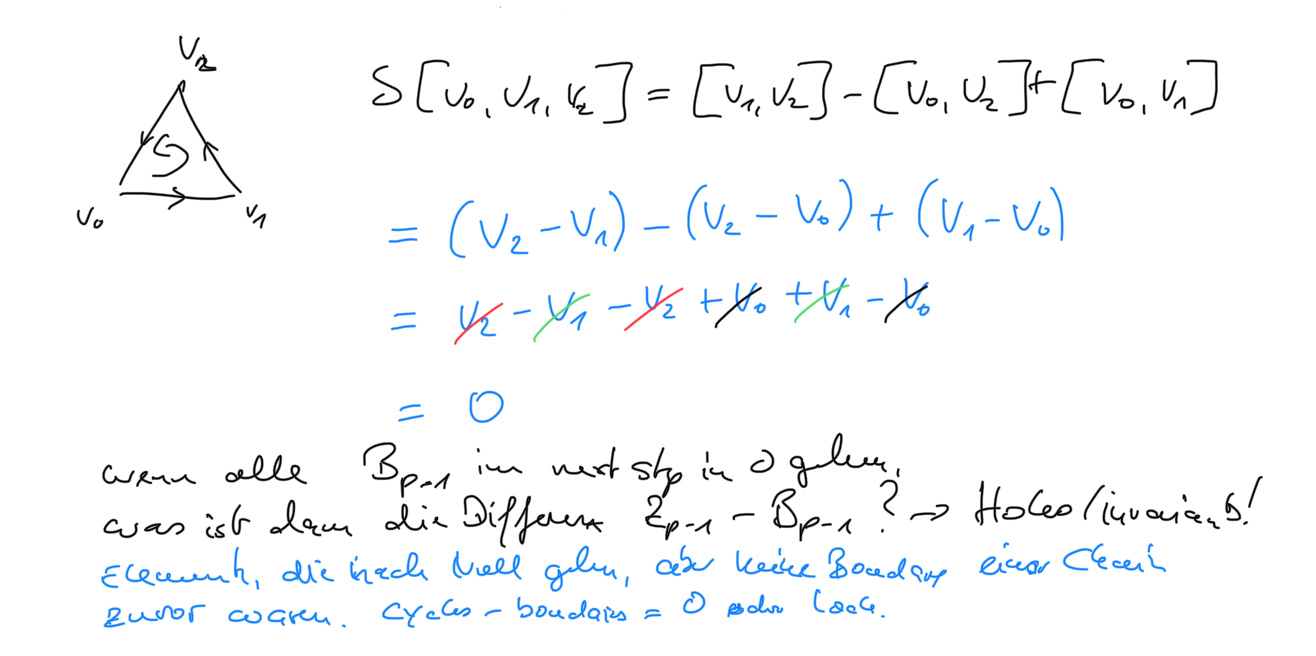 V₂
V₀
V₁
S[V₀, V₁, V₂] = [V₁, V₂] - [V₀, V₂] + [V₀, V₁]
= (V₂ - V₁) - (V₂ - V₀) + (V₁ - V₀)
= V₂ - V₁ - V₂ + V₀ + V₁ - V₀
= 0
wenn alle Bₚ₋₁ im next step in 0 gehen,
was ist dann die Differenz Zₚ₋₁ - Bₚ₋₁? → Holes/invariants!
Elemente, die nach Null gehen, aber keine Boundary einer Chain
zuvor waren. cycles - boundaries = 0 oder Loch.